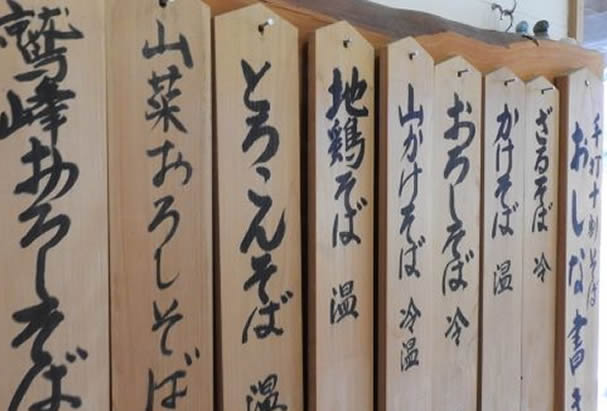 手打十割そば
おしな書き
ざるそば 冷
かけそば 温
おろしそば 冷
山かけそば 冷温
地鶏そば 温
とろろそば 温
山菜おろしそば
鷲峰おろしそば